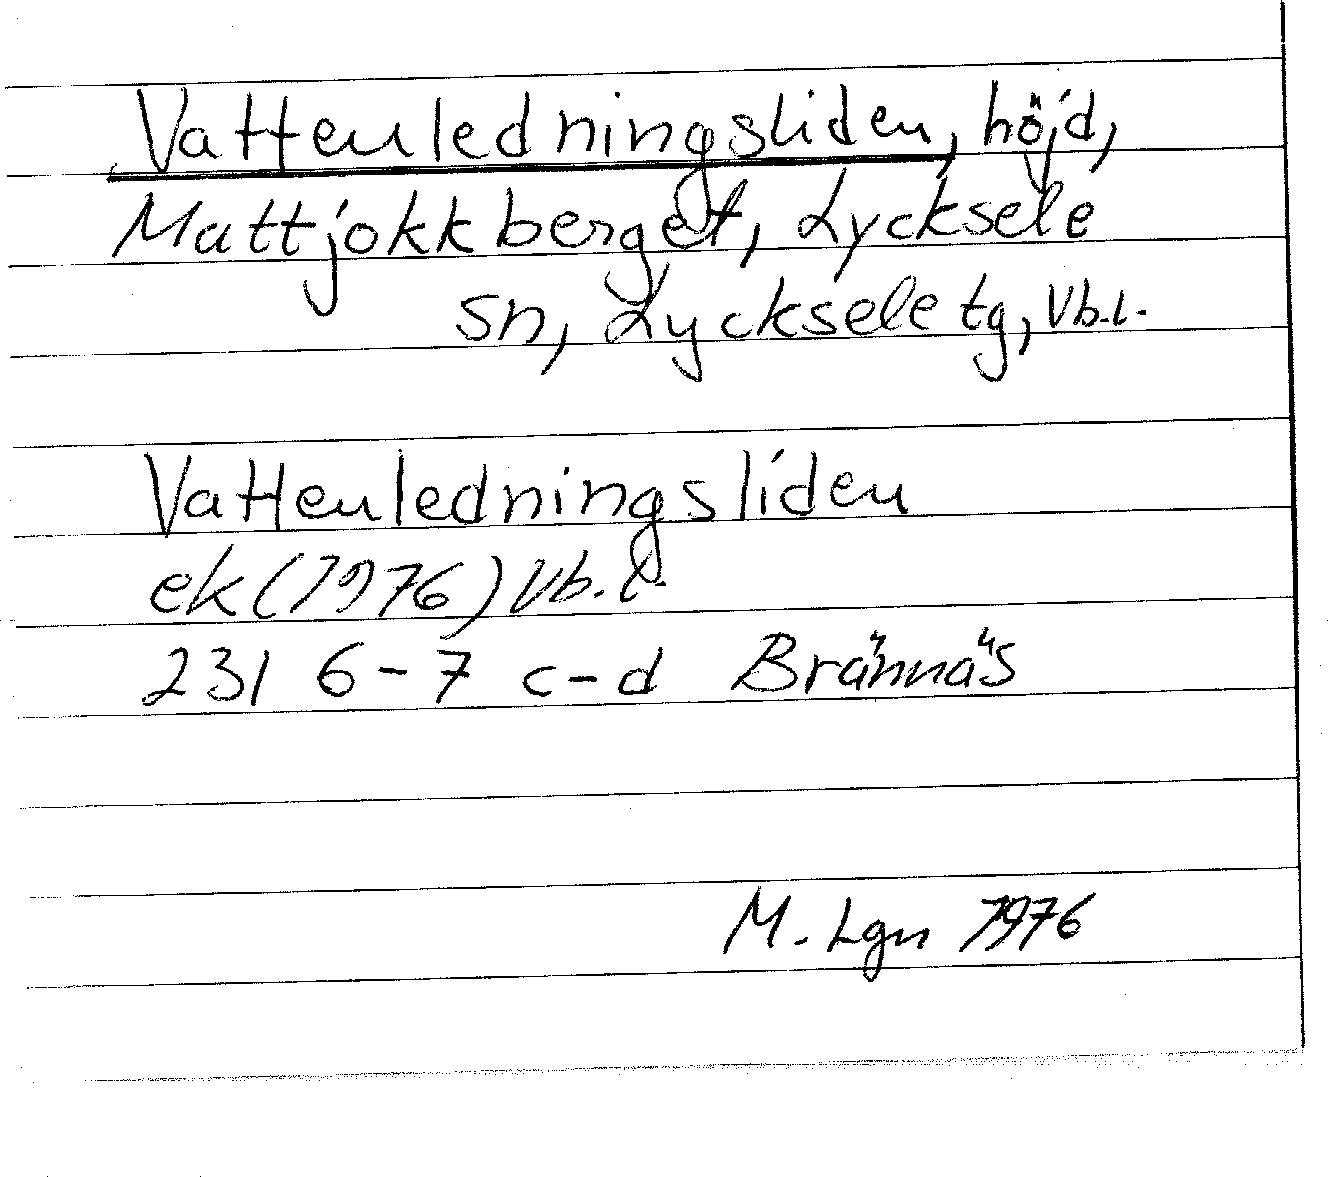 Vattenledningsliden, höjd,
Mattjokkberget, Lycksele
sn, Lycksele tg, Vb.l.
Vattenledningsliden
ek (1976) Vb.l.
231 6-7 c-d Brännäs
M. Lgn 1976